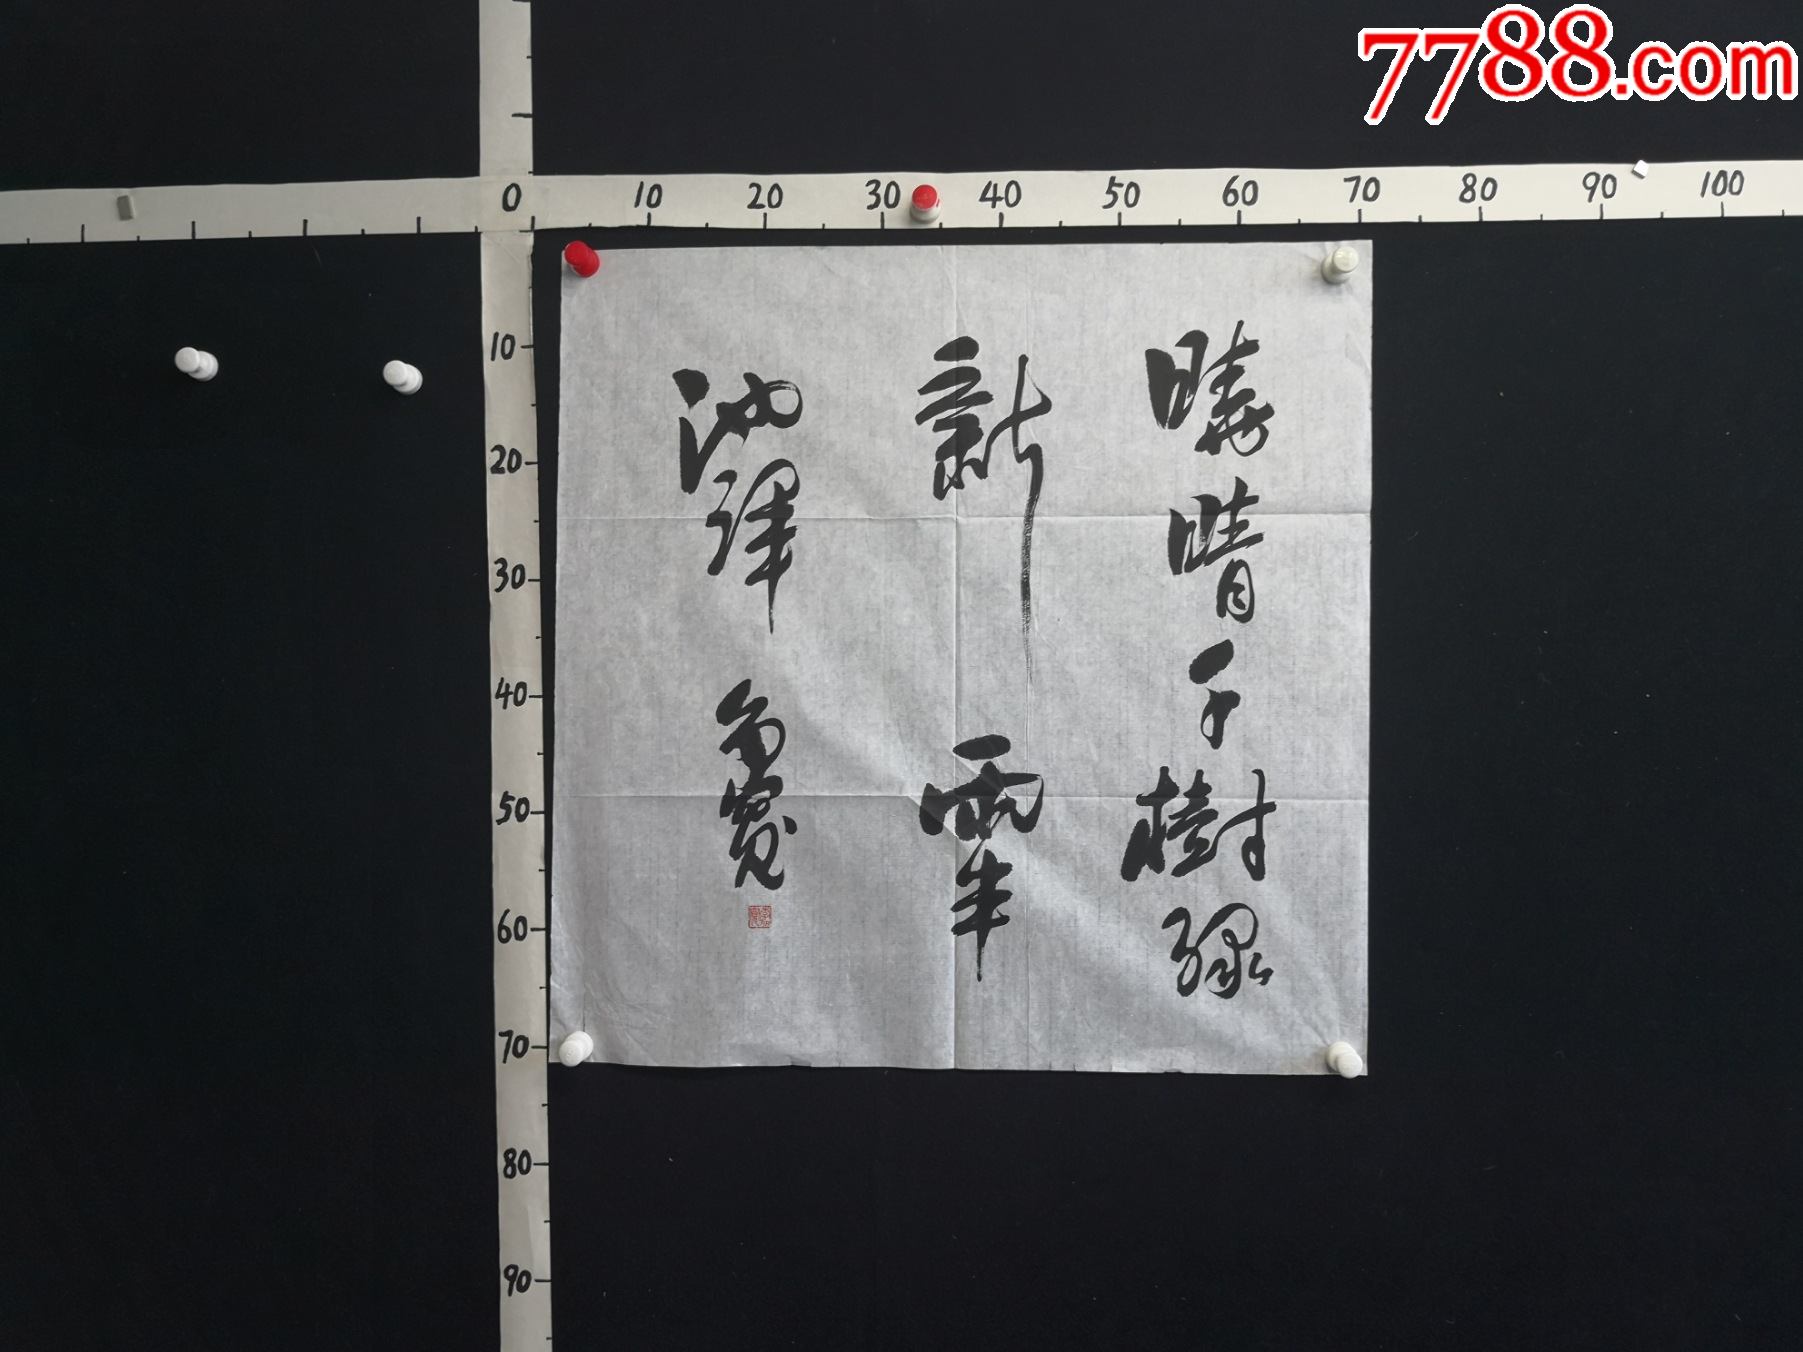 7788.com
0 10 20 30 40 50 60 70 80 90 100
10
20
30
40
50
60
70
80
90
曉晴千樹綠
新雨半
池渾